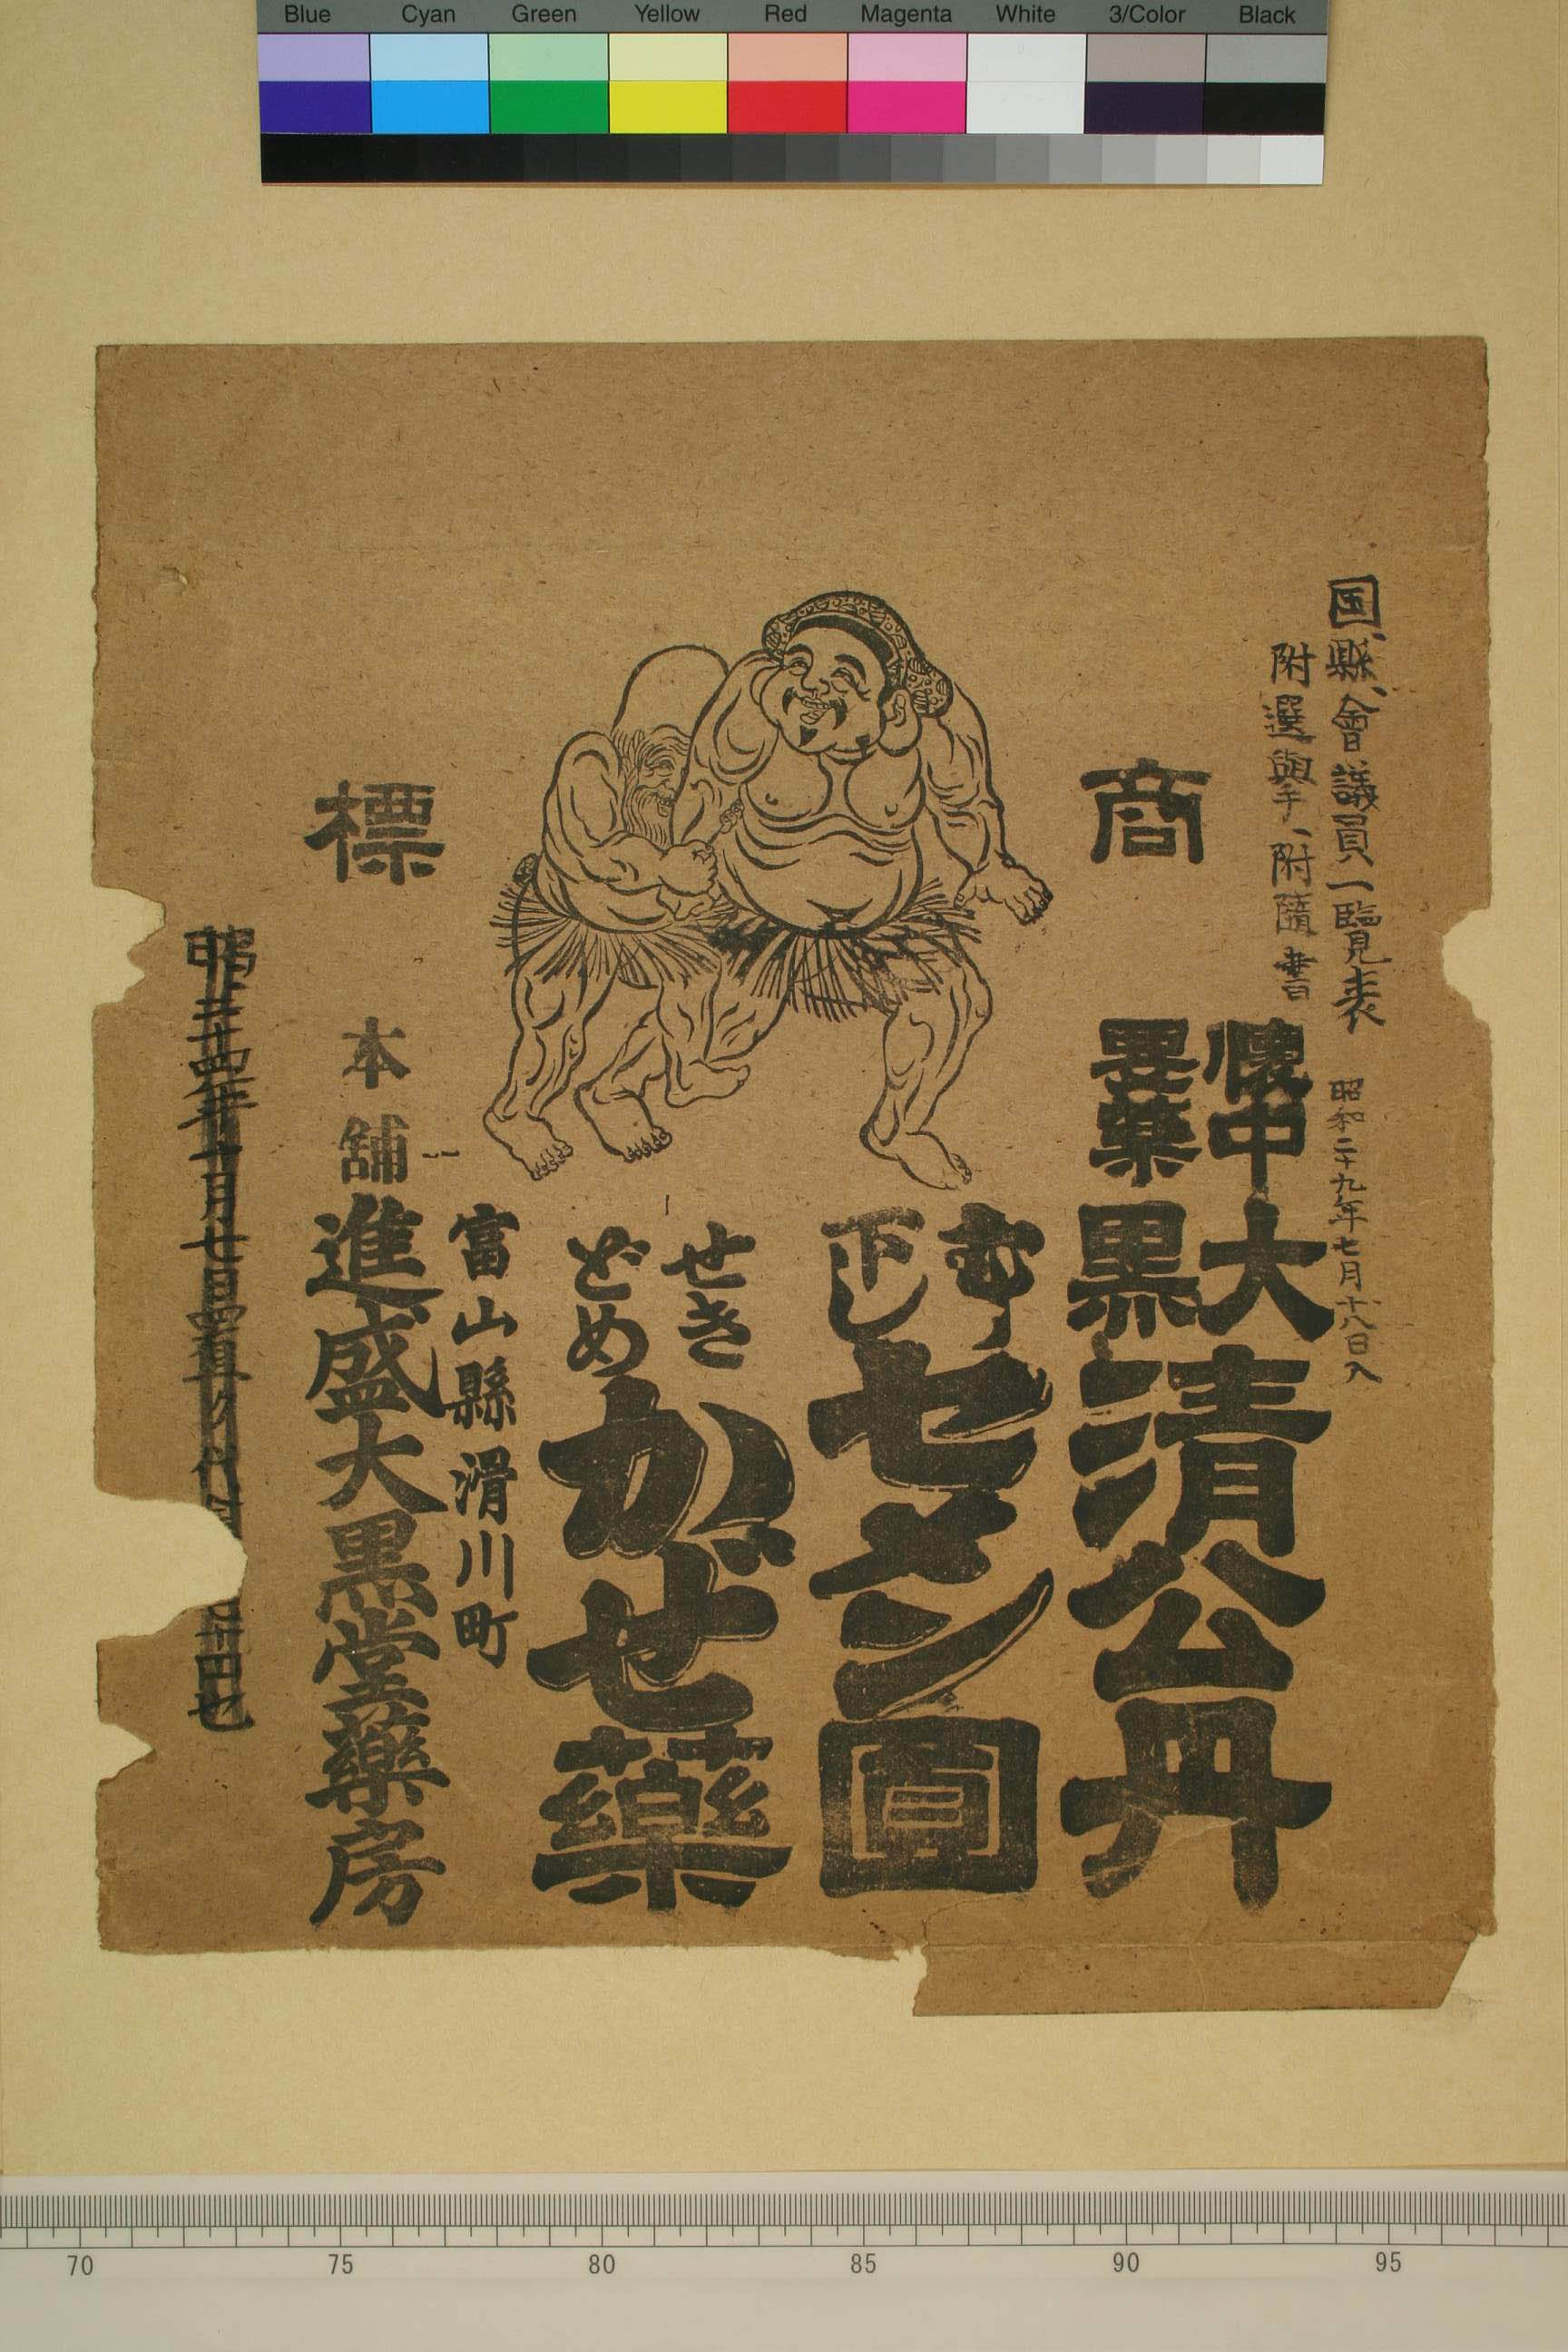 Blue Cyan Green Yellow Red Magenta White 3/Color Black
国、縣、會議員一覧表 昭和二十九年七月十八日入
附選擧、附隨書
商標
懐中要薬
大黒清公丹
むし下し
セメン圓
せきどめ
かぜ薬
富山縣滑川町
本舗
進盛大黒堂薬房
70 75 80 85 90 95